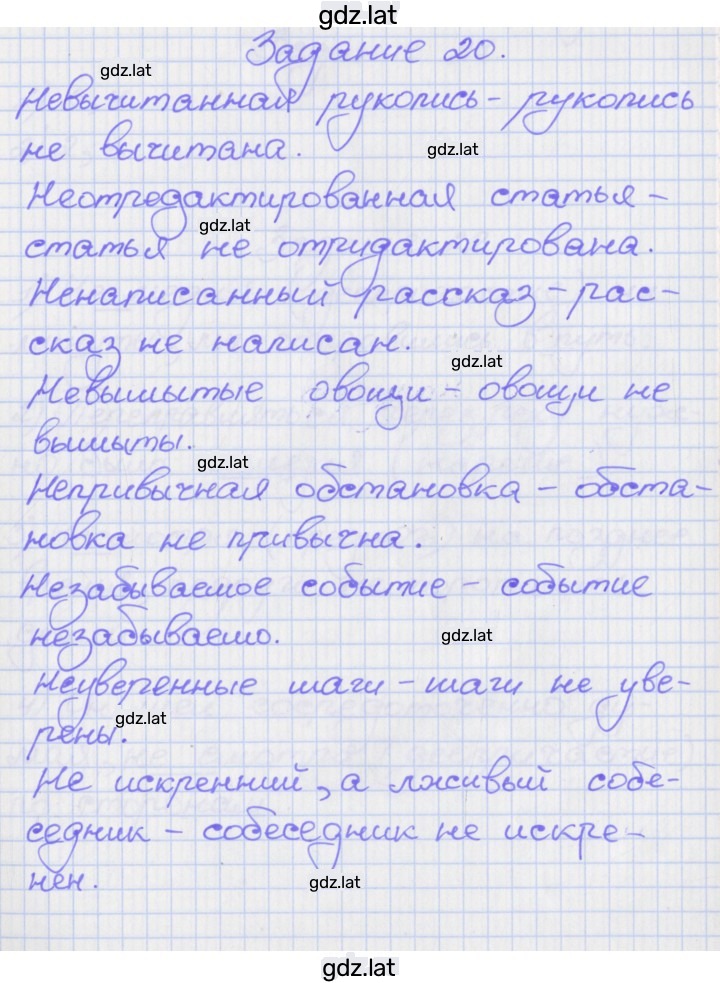 gdz.lat
Задание 20.
gdz.lat
Невычитанная рукопись - рукопись
не вычитана.
gdz.lat
Неотредактированная статья -
gdz.lat
статья не отридактирована.
Ненаписанный рассказ - рас-
сказ не написан.
gdz.lat
Невымытые овощи - овощи не
вымыты.
gdz.lat
Непривычная обстановка - обста-
новка не привычна.
Незабываемое событие - событие
незабываемо.
gdz.lat
Неуверенные шаги - шаги не уве-
gdz.lat
рены.
Не искренний, а лживый собе-
седник - собеседник не искре-
нен.
gdz.lat
gdz.lat